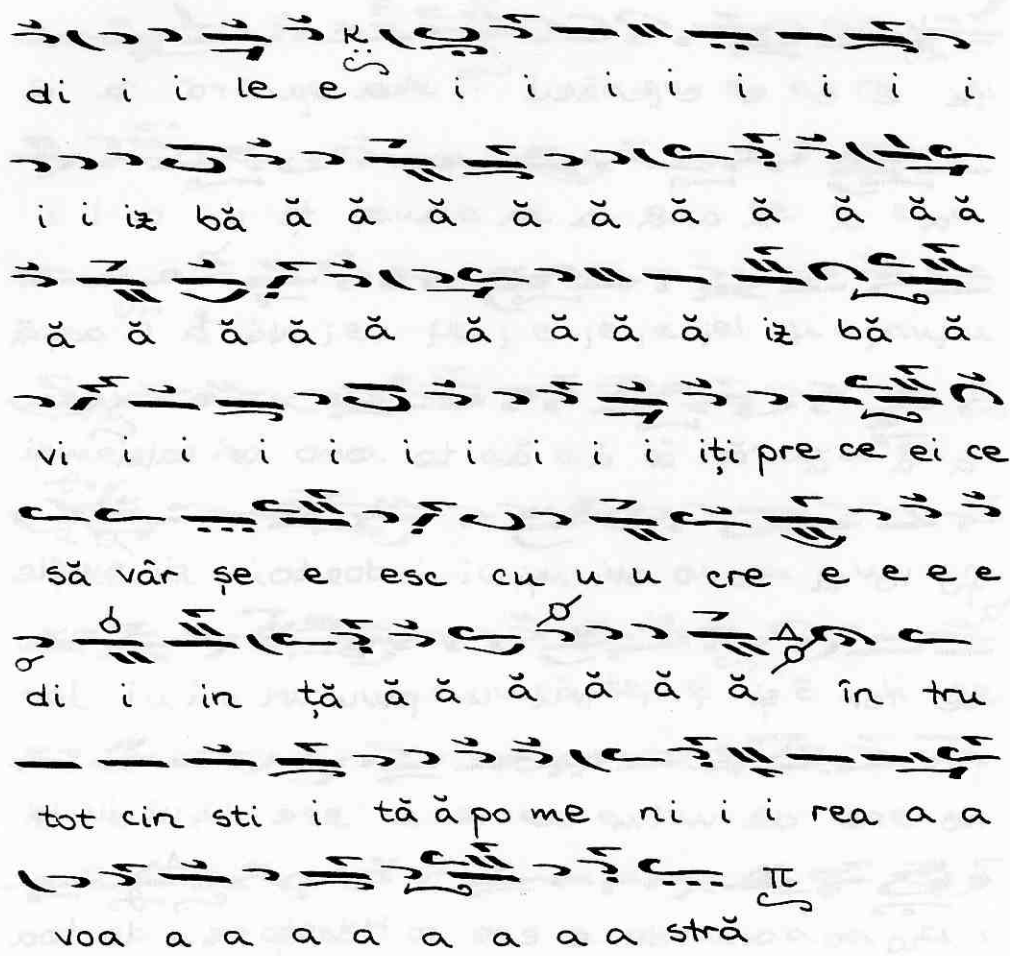 di i i le e i i i i i i i i
i i iz bă ă ă ă ă ă ă ă ă ă ă
ă ă ă ă ă ă ă ă ă iz bă ă
vi i i i i i i i i i iți pre ce ei ce
să vâr șe e esc cu u u cre e e e e
di i in ță ă ă ă ă ă ă în tru
tot cin sti i tă ă po me ni i i rea a a
voa a a a a a a a a stră